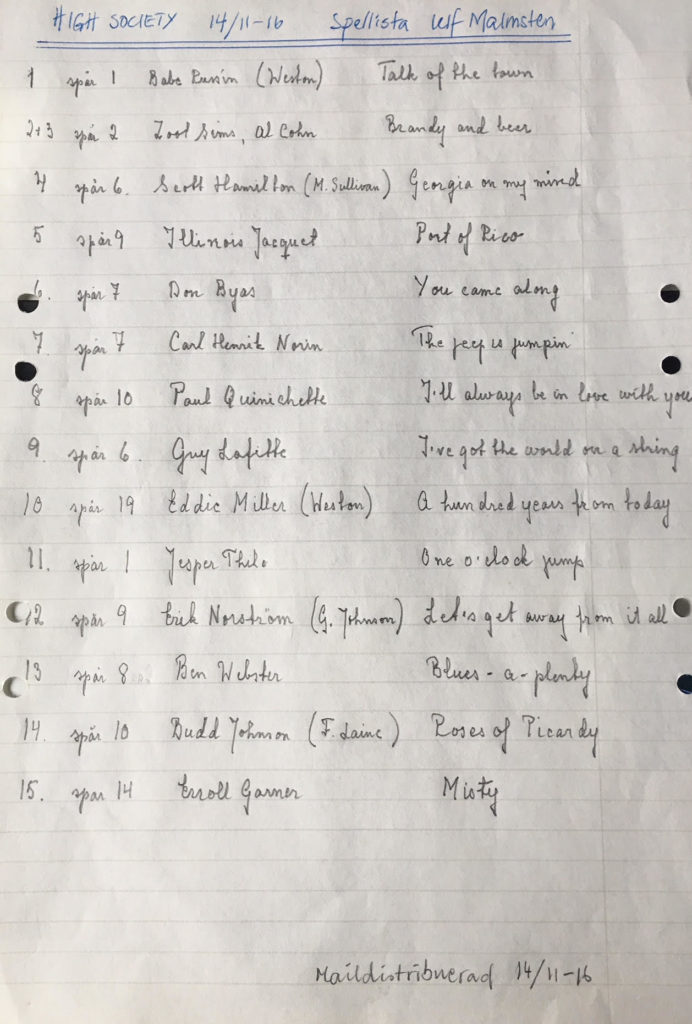 HIGH SOCIETY 14/11-16 Spellista Leif Malmsten
1 spår 1 Babe Russin (Weston) Talk of the town
2+3 spår 2 Zoot Sims, Al Cohn Brandy and beer
4 spår 6. Scott Hamilton (M. Sullivan) Georgia on my mind
5 spår 9 Illinois Jacquet Port of Rico
6. spår 7 Don Byas You came along
7. spår 7 Carl Henrik Norin The jeep is jumpin'
8 spår 10 Paul Quinichette I'll always be in love with you
9. spår 6. Guy Lafitte I've got the world on a string
10 spår 19 Eddie Miller (Weston) A hundred years from today
11. spår 1 Jesper Thilo One o'clock jump
12 spår 9 Erik Norström (G. Johnson) Let's get away from it all
13 spår 8 Ben Webster Blues-a-plenty
14. spår 10 Budd Johnson (F. Laine) Roses of Picardy
15. spår 14 Erroll Garner Misty
Maildistribuerad 14/11-16